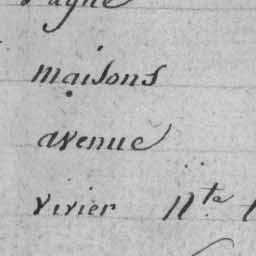 maisons
avenue
vivier N.te